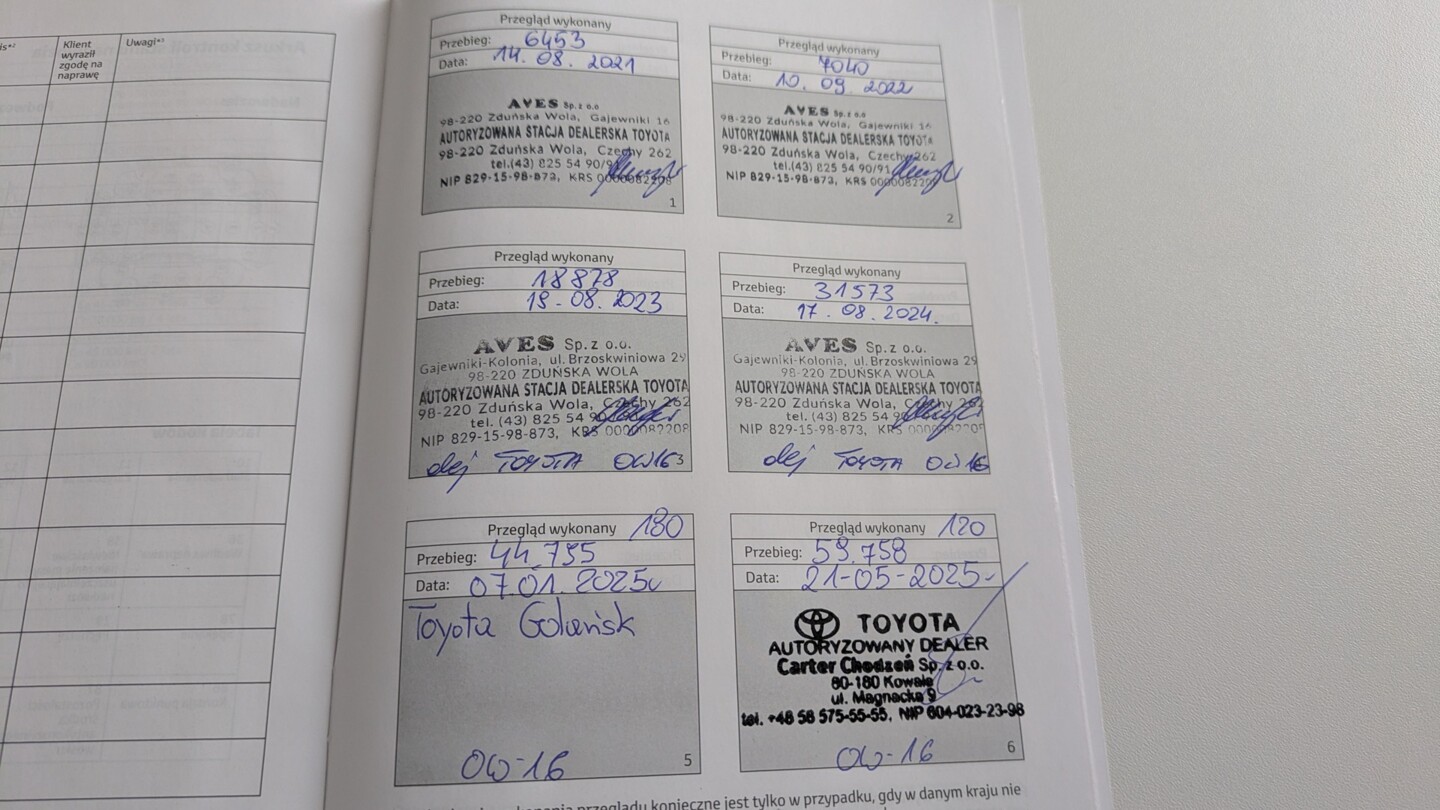 is*²
Klient
wyraził
zgodę na
naprawę
Uwagi*³
Przegląd wykonany
Przebieg: 6453
Data: 14.08.2021
AVES Sp. z o.o
98-220 Zduńska Wola, Gajewniki 16
AUTORYZOWANA STACJA DEALERSKA TOYOTA
98-220 Zduńska Wola, Czechy 262
tel.(43) 825 54 90/91
NIP 829-15-98-873, KRS 0000082208
1
Przegląd wykonany
Przebieg: 7040
Data: 10.09.2022
AVES Sp. z o.o
98-220 Zduńska Wola, Gajewniki 16
AUTORYZOWANA STACJA DEALERSKA TOYOTA
98-220 Zduńska Wola, Czechy 262
tel.(43) 825 54 90/91
NIP 829-15-98-873, KRS 000008220
2
Przegląd wykonany
Przebieg: 18878
Data: 19-08.2023
AVES Sp. z o.o.
Gajewniki-Kolonia, ul. Brzoskwiniowa 29
98-220 ZDUŃSKA WOLA
AUTORYZOWANA STACJA DEALERSKA TOYOTA
98-220 Zduńska Wola, Czechy 262
tel. (43) 825 54 90
NIP 829-15-98-873, KRS 0000082208
olej TOYOTA OW16
3
Przegląd wykonany
Przebieg: 31573
Data: 17.08.2024.
AVES Sp. z o.o.
Gajewniki-Kolonia, ul. Brzoskwiniowa 29
98-220 ZDUŃSKA WOLA
AUTORYZOWANA STACJA DEALERSKA TOYOTA
98-220 Zduńska Wola, Czechy 262
tel. (43) 825 54 9
NIP 829-15-98-873, KRS 0000082208
olej TOYOTA OW16
Przegląd wykonany 180
Przebieg: 44.795
Data: 07.01.2025
Toyota
OW-16
5
Przegląd wykonany 120
Przebieg: 59.758
Data: 21-05-2025
TOYOTA
AUTORYZOWANY DEALER
Carter Chodzeń Sp. z o.o.
80-180 Kowale
ul. Magnacka 9
tel. +48 58 575-55-55, NIP 604-023-23-98
OW-16
6
przeglądu konieczne jest tylko w przypadku, gdy w danym kraju nie